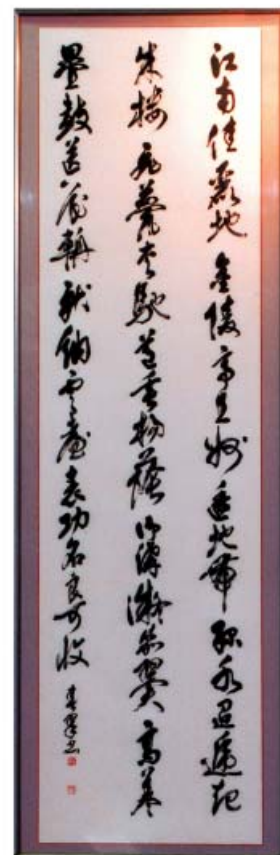 江南佳麗地金陵帝王州逶迤帶綠水迢遞起
朱樓飛甍夾馳道垂楊蔭御溝凝笳翼高蓋
疊鼓送華輈獻納雲臺表功名良可收